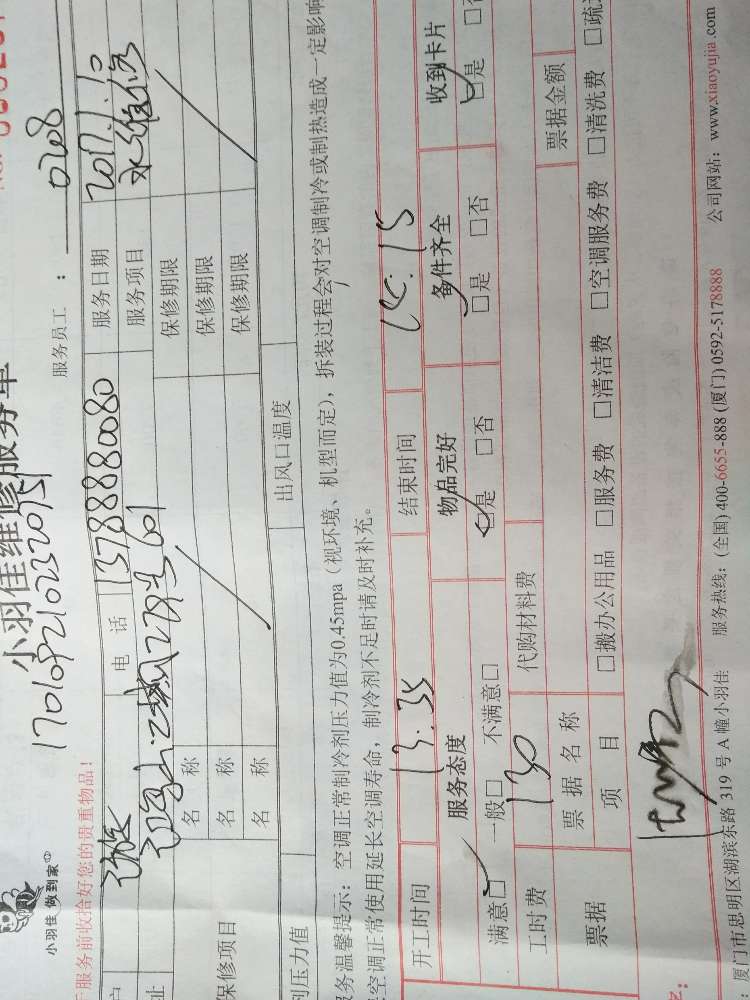 小羽佳 做到家
小羽佳维修服务单
服务员工：0208
服务前收拾好您的贵重物品！
电话 13788880080 服务日期 2017.1.10
601 服务项目
名称 保修期限
保修项目 名称 保修期限
名称 保修期限
压力值 出风口温度
服务温馨提示：空调正常制冷剂压力值为0.45mpa（视环境、机型而定），拆装过程会对空调制冷或制热造成一定影响
空调正常使用延长空调寿命，制冷剂不足时请及时补充。
开工时间 13.35 结束时间 14.15
服务态度 物品完好 备件齐全 收到卡片
满意□ 一般□ 不满意□ □是 □否 □是 □否 □是
工时费 130 代购材料费
票据 票据名称 票据金额
项目 □搬办公用品 □服务费 □清洁费 □空调服务费 □清洗费 □疏
厦门市思明区湖滨东路 319 号 A 幢小羽佳 服务热线：(全国) 400-6655-888 (厦门) 0592-5178888 公司网站：www.xiaoyujia.com